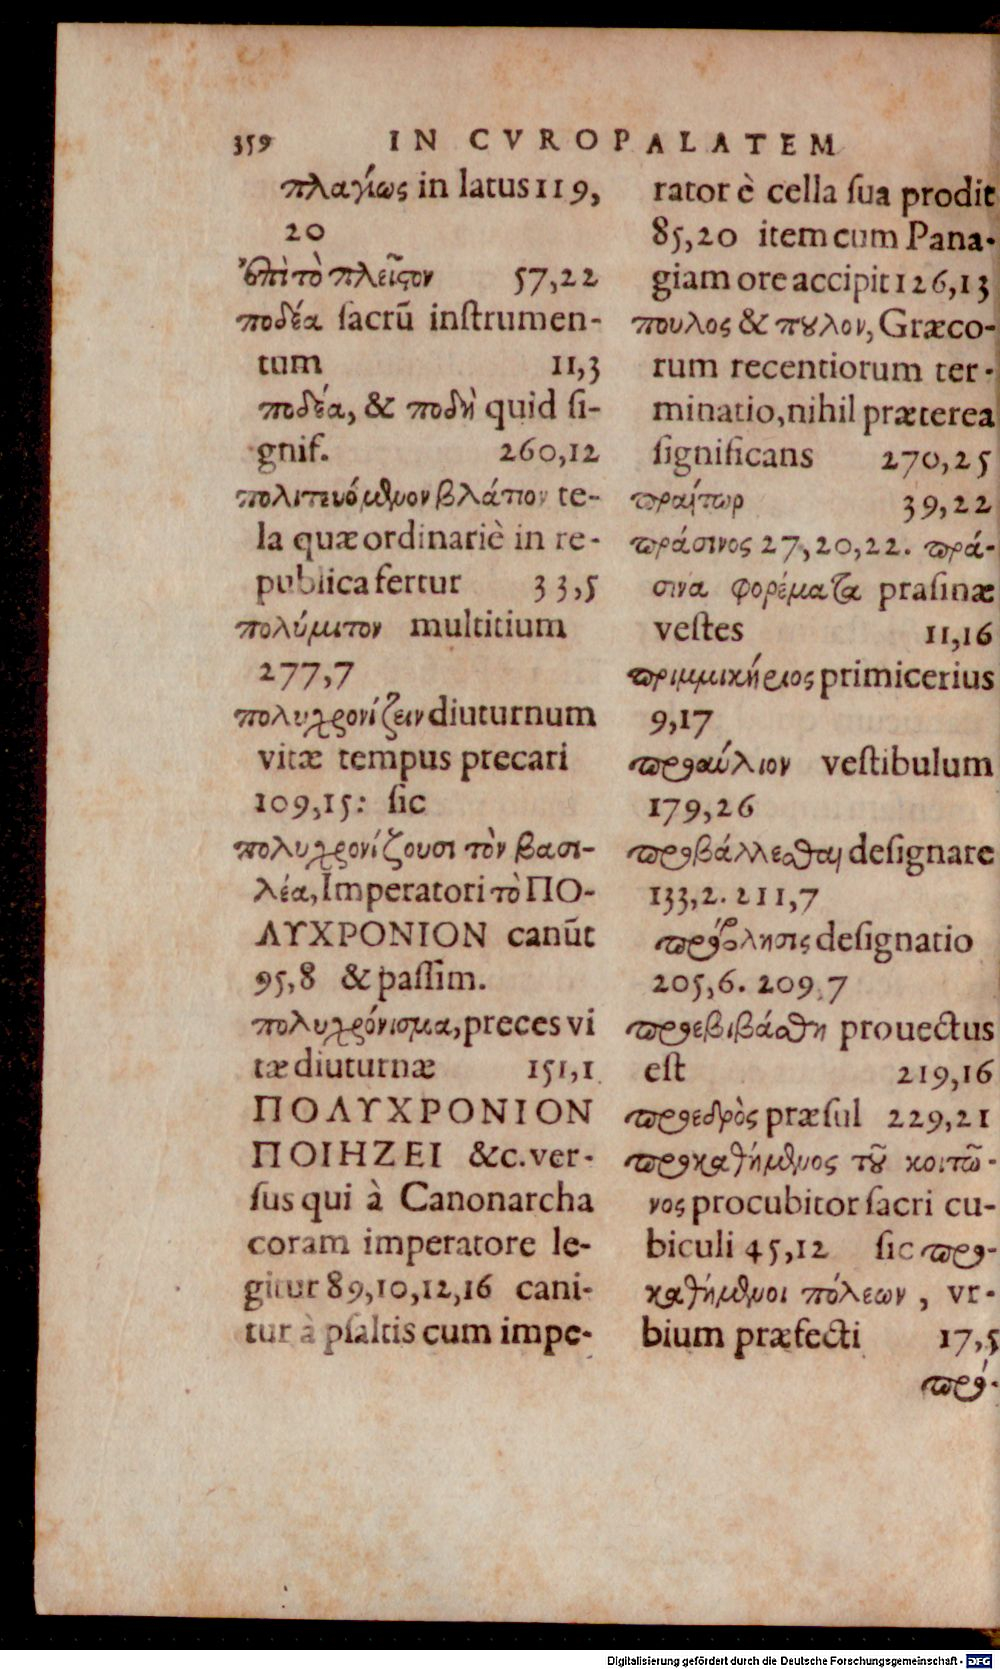 359 IN CVROPALATEM
πλαγίως in latus 119,
20
ἐπὶ τὸ πλεῖστον 57,22
ποδέα sacrū instrumen-
tum 11,3
ποδέα, & ποδὴ quid si-
gnif. 260,12
πολιτευόμενον βλάτιον te-
la quæ ordinariè in re-
publica fertur 33,5
πολύμιτον multitium
277,7
πολυχρονίζειν diuturnum
vitæ tempus precari
109,15: sic
πολυχρονίζουσι τὸν βασι-
λέα, Imperatori τὸ ΠΟ-
ΛΥΧΡΟΝΙΟΝ canūt
95,8 & passim.
πολυχρόνισμα, preces vi
tæ diuturnæ 151,1
ΠΟΛΥΧΡΟΝΙΟΝ
ΠΟΙΗΖΕΙ &c. ver-
sus qui à Canonarcha
coram imperatore le-
gitur 89,10,12,16 cani-
tur à psaltis cum impe-
rator è cella sua prodit
85,20 item cum Pana-
giam ore accipit 126,13
πουλος & πουλον, Græco-
rum recentiorum ter-
minatio, nihil præterea
significans 270,25
πραίτωρ 39,22
πράσινος 27,20,22. πρά-
σινα φορέματα prasinæ
vestes 11,16
πριμμικήριος primicerius
9,17
προαύλιον vestibulum
179,26
προβάλλεσθαι designare
133,2. 211,7
πρόβλησις designatio
205,6. 209,7
προεβιβάσθη prouectus
est 219,16
προεδρὸς præsul 229,21
προκαθήμενος τοῦ κοιτῶ-
νος procubitor sacri cu-
biculi 45,12 sic προ-
καθήμενοι πόλεων, vr-
bium præfecti 17,5
πρό-
Digitalisierung gefördert durch die Deutsche Forschungsgemeinschaft - DFG